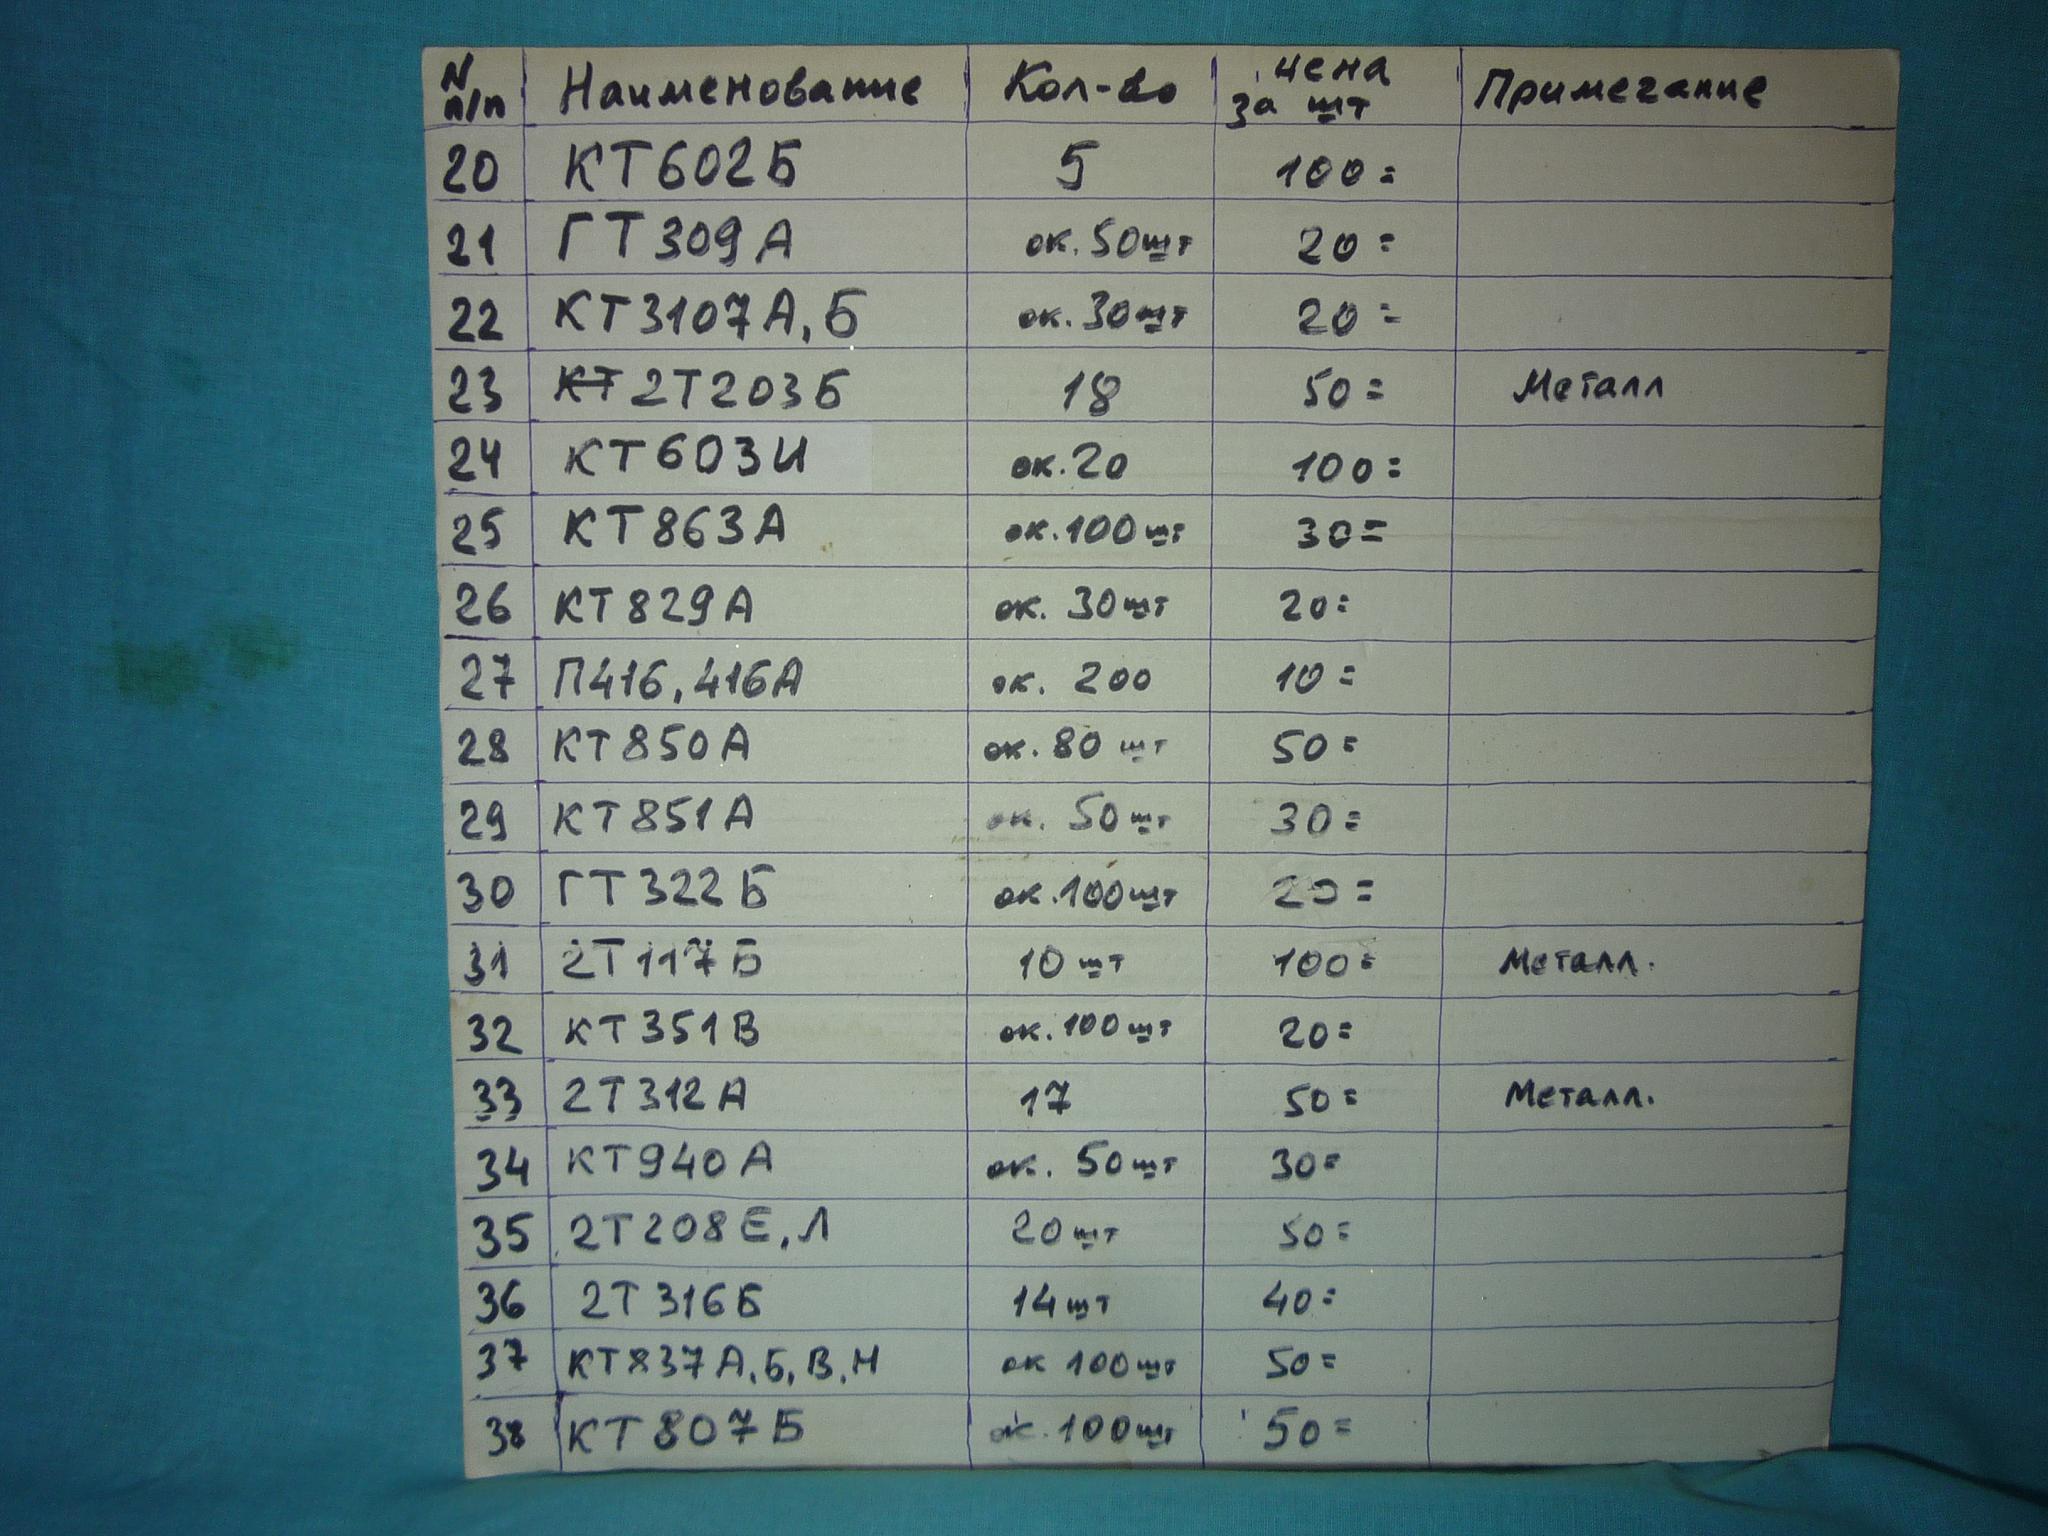 N п/п Наименование Кол-во цена за шт Примечание
20 КТ602Б 5 100=
21 ГТ309А ок. 50шт 20=
22 КТ3107А,Б ок. 30шт 20=
23 КТ 2Т203Б 18 50= Металл
24 КТ603И ок. 20 100=
25 КТ863А ок. 100шт 30=
26 КТ829А ок. 30шт 20=
27 П416, 416А ок. 200 10=
28 КТ850А ок. 80 шт 50=
29 КТ851А ок. 50шт 30=
30 ГТ322Б ок. 100шт 20=
31 2Т117Б 10 шт 100= Металл.
32 КТ351В ок. 100шт 20=
33 2Т312А 17 50= Металл.
34 КТ940А ок. 50шт 30=
35 2Т208Е,Л 20шт 50=
36 2Т316Б 14шт 40=
37 КТ837А,Б,В,Н ок 100шт 50=
38 КТ807Б ок. 100шт 50=